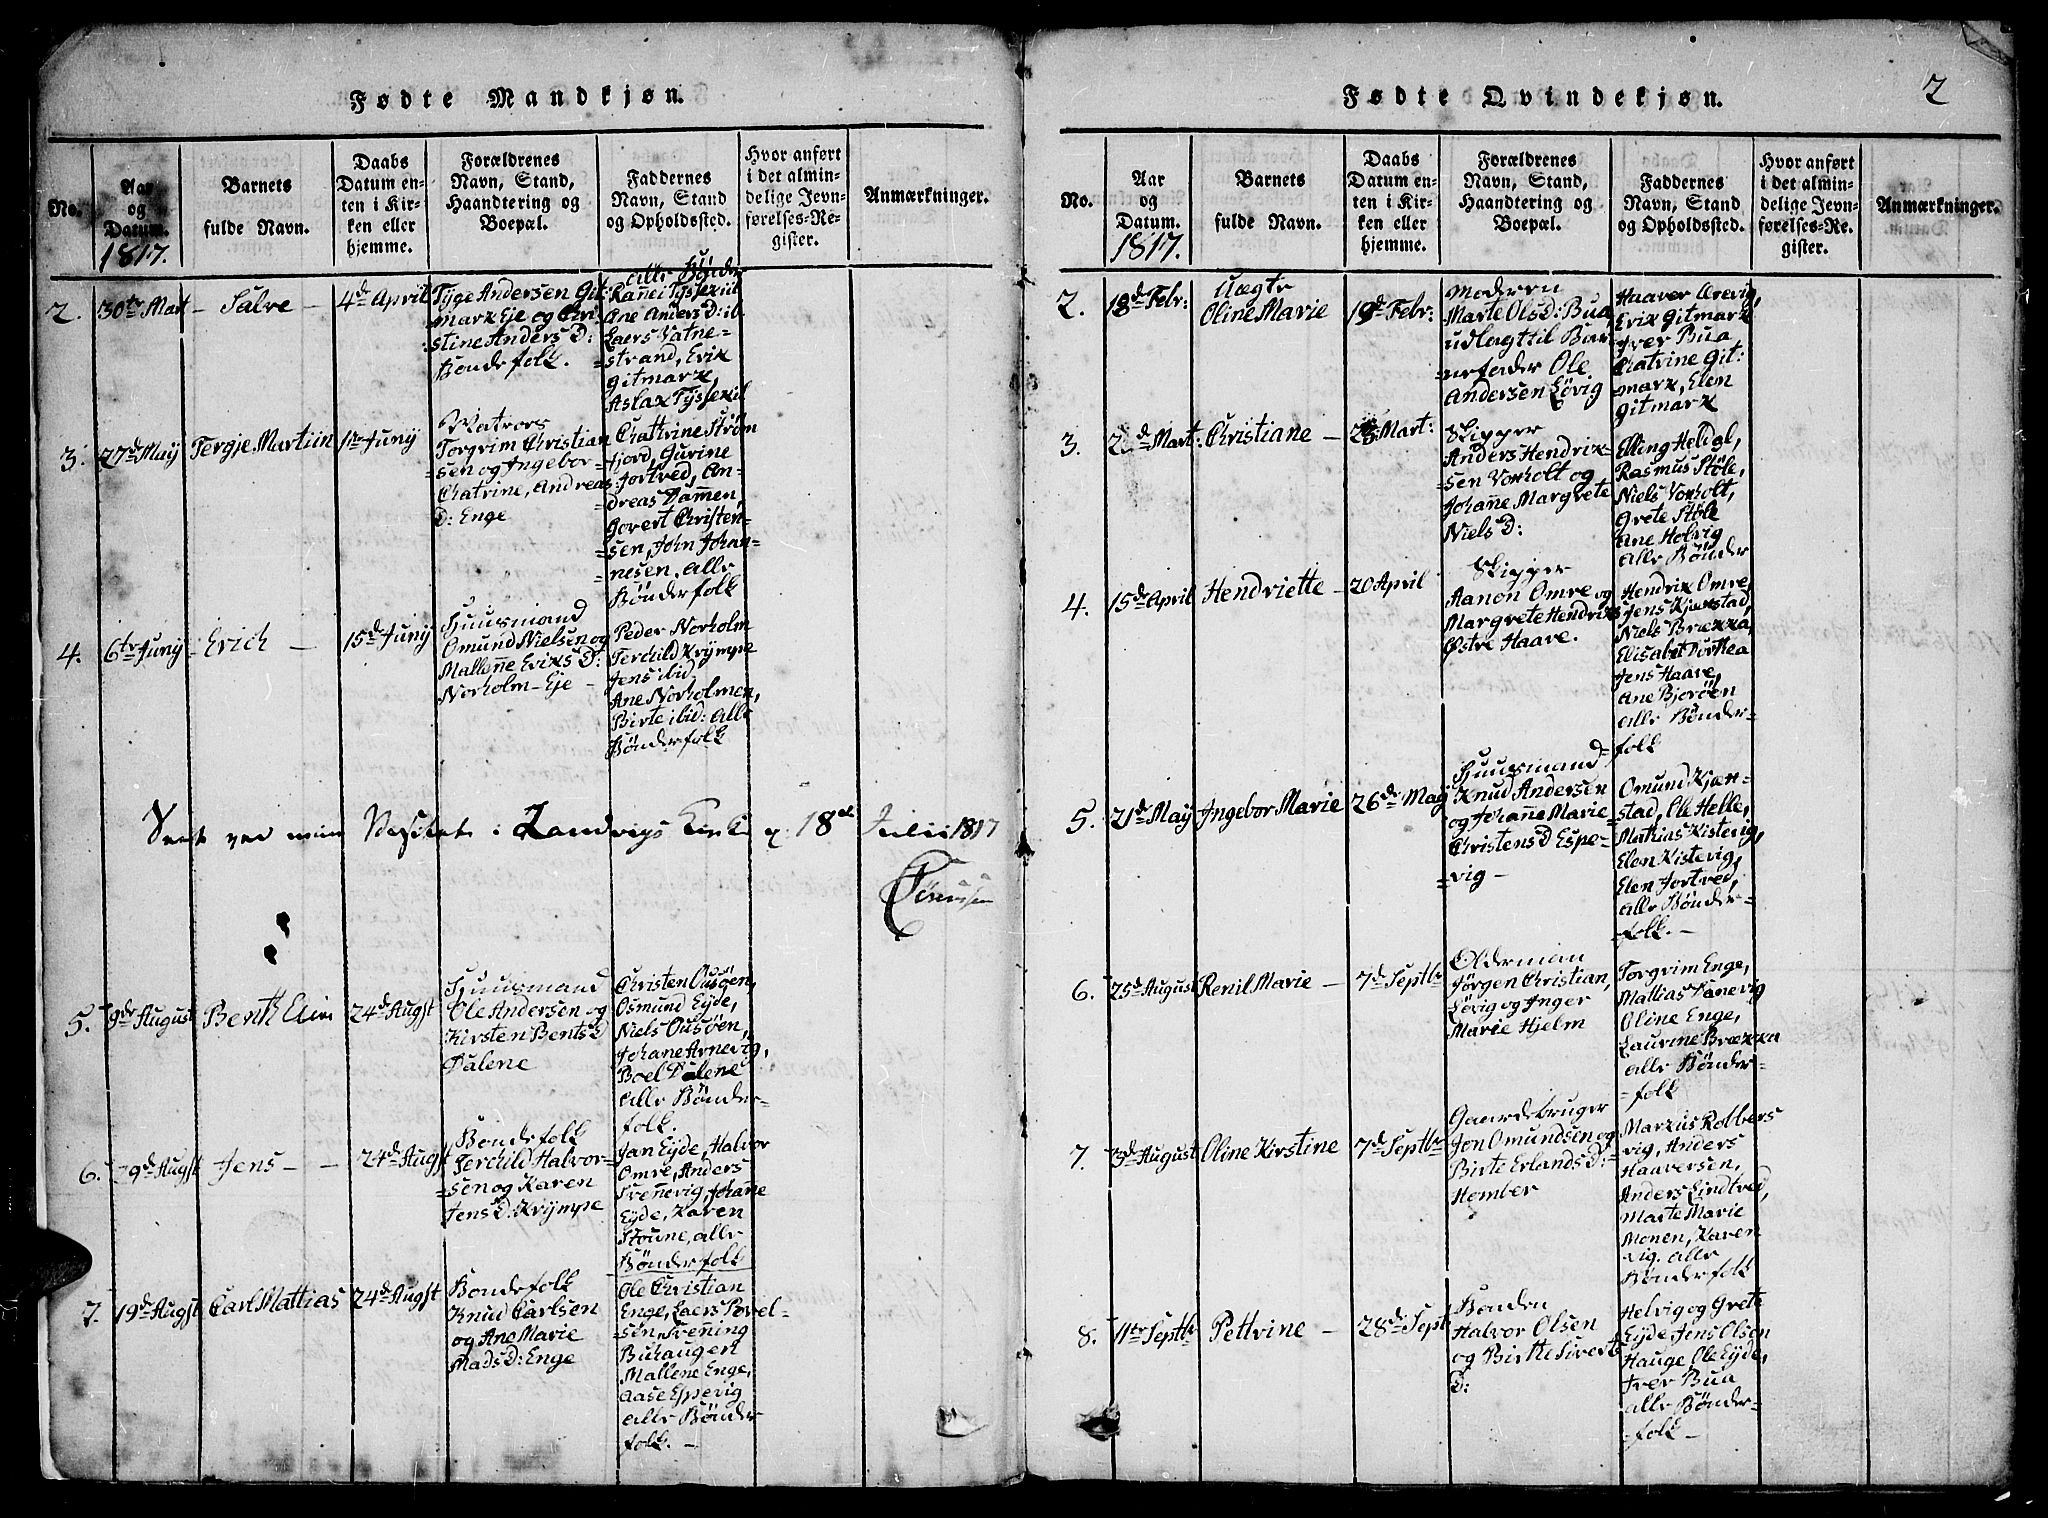 Fødte Mandkjøn.
No.
Aar
og
Datum.
1817.
Barnets
fulde Navn.
Daabs
Datum en-
ten i Kir-
ken eller
hjemme.
Forældrenes
Navn, Stand,
Haandtering og
Boepæl.
Faddernes
Navn, Stand
og Opholdssted.
Hvor anført
i det almin-
delige Jevn-
førelses-Re-
gister.
Anmærkninger.
2.
30te Mart
Salve
4de April
Tyge Andersen Git:
mark Eje og Chri-
stine Anders D:
Bondefolk.
alle Bönder
Ranei Tyssexiil
Ane Anders D: ib.
Laers Vatne-
strand, Erik
Gitmark,
Aslak Tyssexiil
3.
27de May
Tergje Martiin
1te Juny
Matros
Torgrim Christian
sen og Ingebor
Chatrine, Andreas
D: Enge
Chathrine Ström
fjord, Gurine
Fortved, An-
dreas Dammen,
Govert Christen-
sen, John Johan-
nesen, alle
Bönderfolk
4.
6te Juny
Erich
15de Juny
Huusmand
Omund Nielsen og
Mallene Eriks D:
Norholm-Eje
Peder Norholm
Terchild Krÿmpe
Jens ibid
Ane Norholmen,
Birte ibid: alle
Bönderfolk
Seet ved min Visitats i Landvigs Kirke d: 18de Julii 1817
5.
9de August
Benth Elias
24de Augst
Huusmand
Ole Andersen og
Kirsten Bents D
Dalene
Christen Ousöen,
Osmund Eyde,
Niels Ousöen,
Johane Arnevig,
Boel Dalene
alle Bönder-
folk.
6.
29de Augst
Jens
24de Augst
Bondefolk
Terchild Halvor-
sen og Karen
Jens D: Krÿmpe
Jan Eyde, Halvor
Omre, Anders
Svennevig, Johanne
Eyde, Karen
Stoune, alle
Bönderfolk
7.
19de Augst
Carl Mattias
24de Augst
Bondefolk
Knud Carlsen
og Ane Marie
Mads D: Enge
Ole Christian
Enge, Laers Povel-
sen, Svenning
Buhaugen
Mallene Enge,
Aase Espevig
alle Bönder
folk.
Fødte Qvindekjøn.
2
No.
Aar
og
Datum.
1817.
Barnets
fulde Navn.
Daabs
Datum en-
ten i Kir-
ken eller
hjemme.
Forældrenes
Navn, Stand,
Haandtering og
Boepæl.
Faddernes
Navn, Stand
og Opholdssted.
Hvor anført
i det almin-
delige Jevn-
førelses-Re-
gister.
Anmærkninger.
2.
18de Febr:
Uægte
Oline Marie
19de Febr:
Moderen
Marte Ols D: Bua,
udlagt til Bar
nefader Ole
Andersen Lövig
Haaver Arevig,
Erik Gitmark
Iver Bua
Chatrine Git:
mark, Elen
Gitmark
3.
Mart:
Christiane
Mart:
Skipper
Anders Hendrik-
sen Vorholt og
Johanne Margrete
Niels D:
Elling Heldal,
Rasmus Stöle,
Niels Vorholt,
Grete Stöle
Ane Holvig
alle Bönder
4.
15de April
Hendriette
20 April
Skipper
Aanon Omre og
Margrete Hendriks
Östre Haave.
Hendrik Omre,
Jens Kjærstad,
Niels Brekka,
Elisabet Dorthea
Jens Haave,
Ane Bjoröen
alle Bönder-
folk
5.
21de May
Ingebor Marie
26de May
Huusmand
Knud Andersen
og Johanne Marie
Christens D Espe-
vig
Omund Kjæn-
stad, Ole Helle,
Mathias Kistevig,
Elen Kistevig,
Elen Fortved,
alle Bönder-
folk.
6.
25de August
Renil Marie
7de Septbr
Olderman
Jörgen Christian,
Lövig og Inger
Marie Hjelm
Torgrim Enge,
Mattias Danevig
Oline Enge,
Laurine Brækka
alle Bönder-
folk
7.
3de August
Oline Kirstine
7de Septbr
Gaardebruger
Jon Omundsen og
Birte Erlands D:
Homber
Markus Robbers
vig, Anders
Haaversen,
Anders Lindtved,
Marte Marie
Monen, Karen
vig. alle
Bönderfolk
8.
11te Septbr
Pettrine
28de Sept
Bonden
Halvor Olsen
og Birthe Siverts
D:
Helvig og Grete
Eyde, Jens Olsen
Hauge, Ole Eyde,
Iver Bua
alle Bönder-
folk